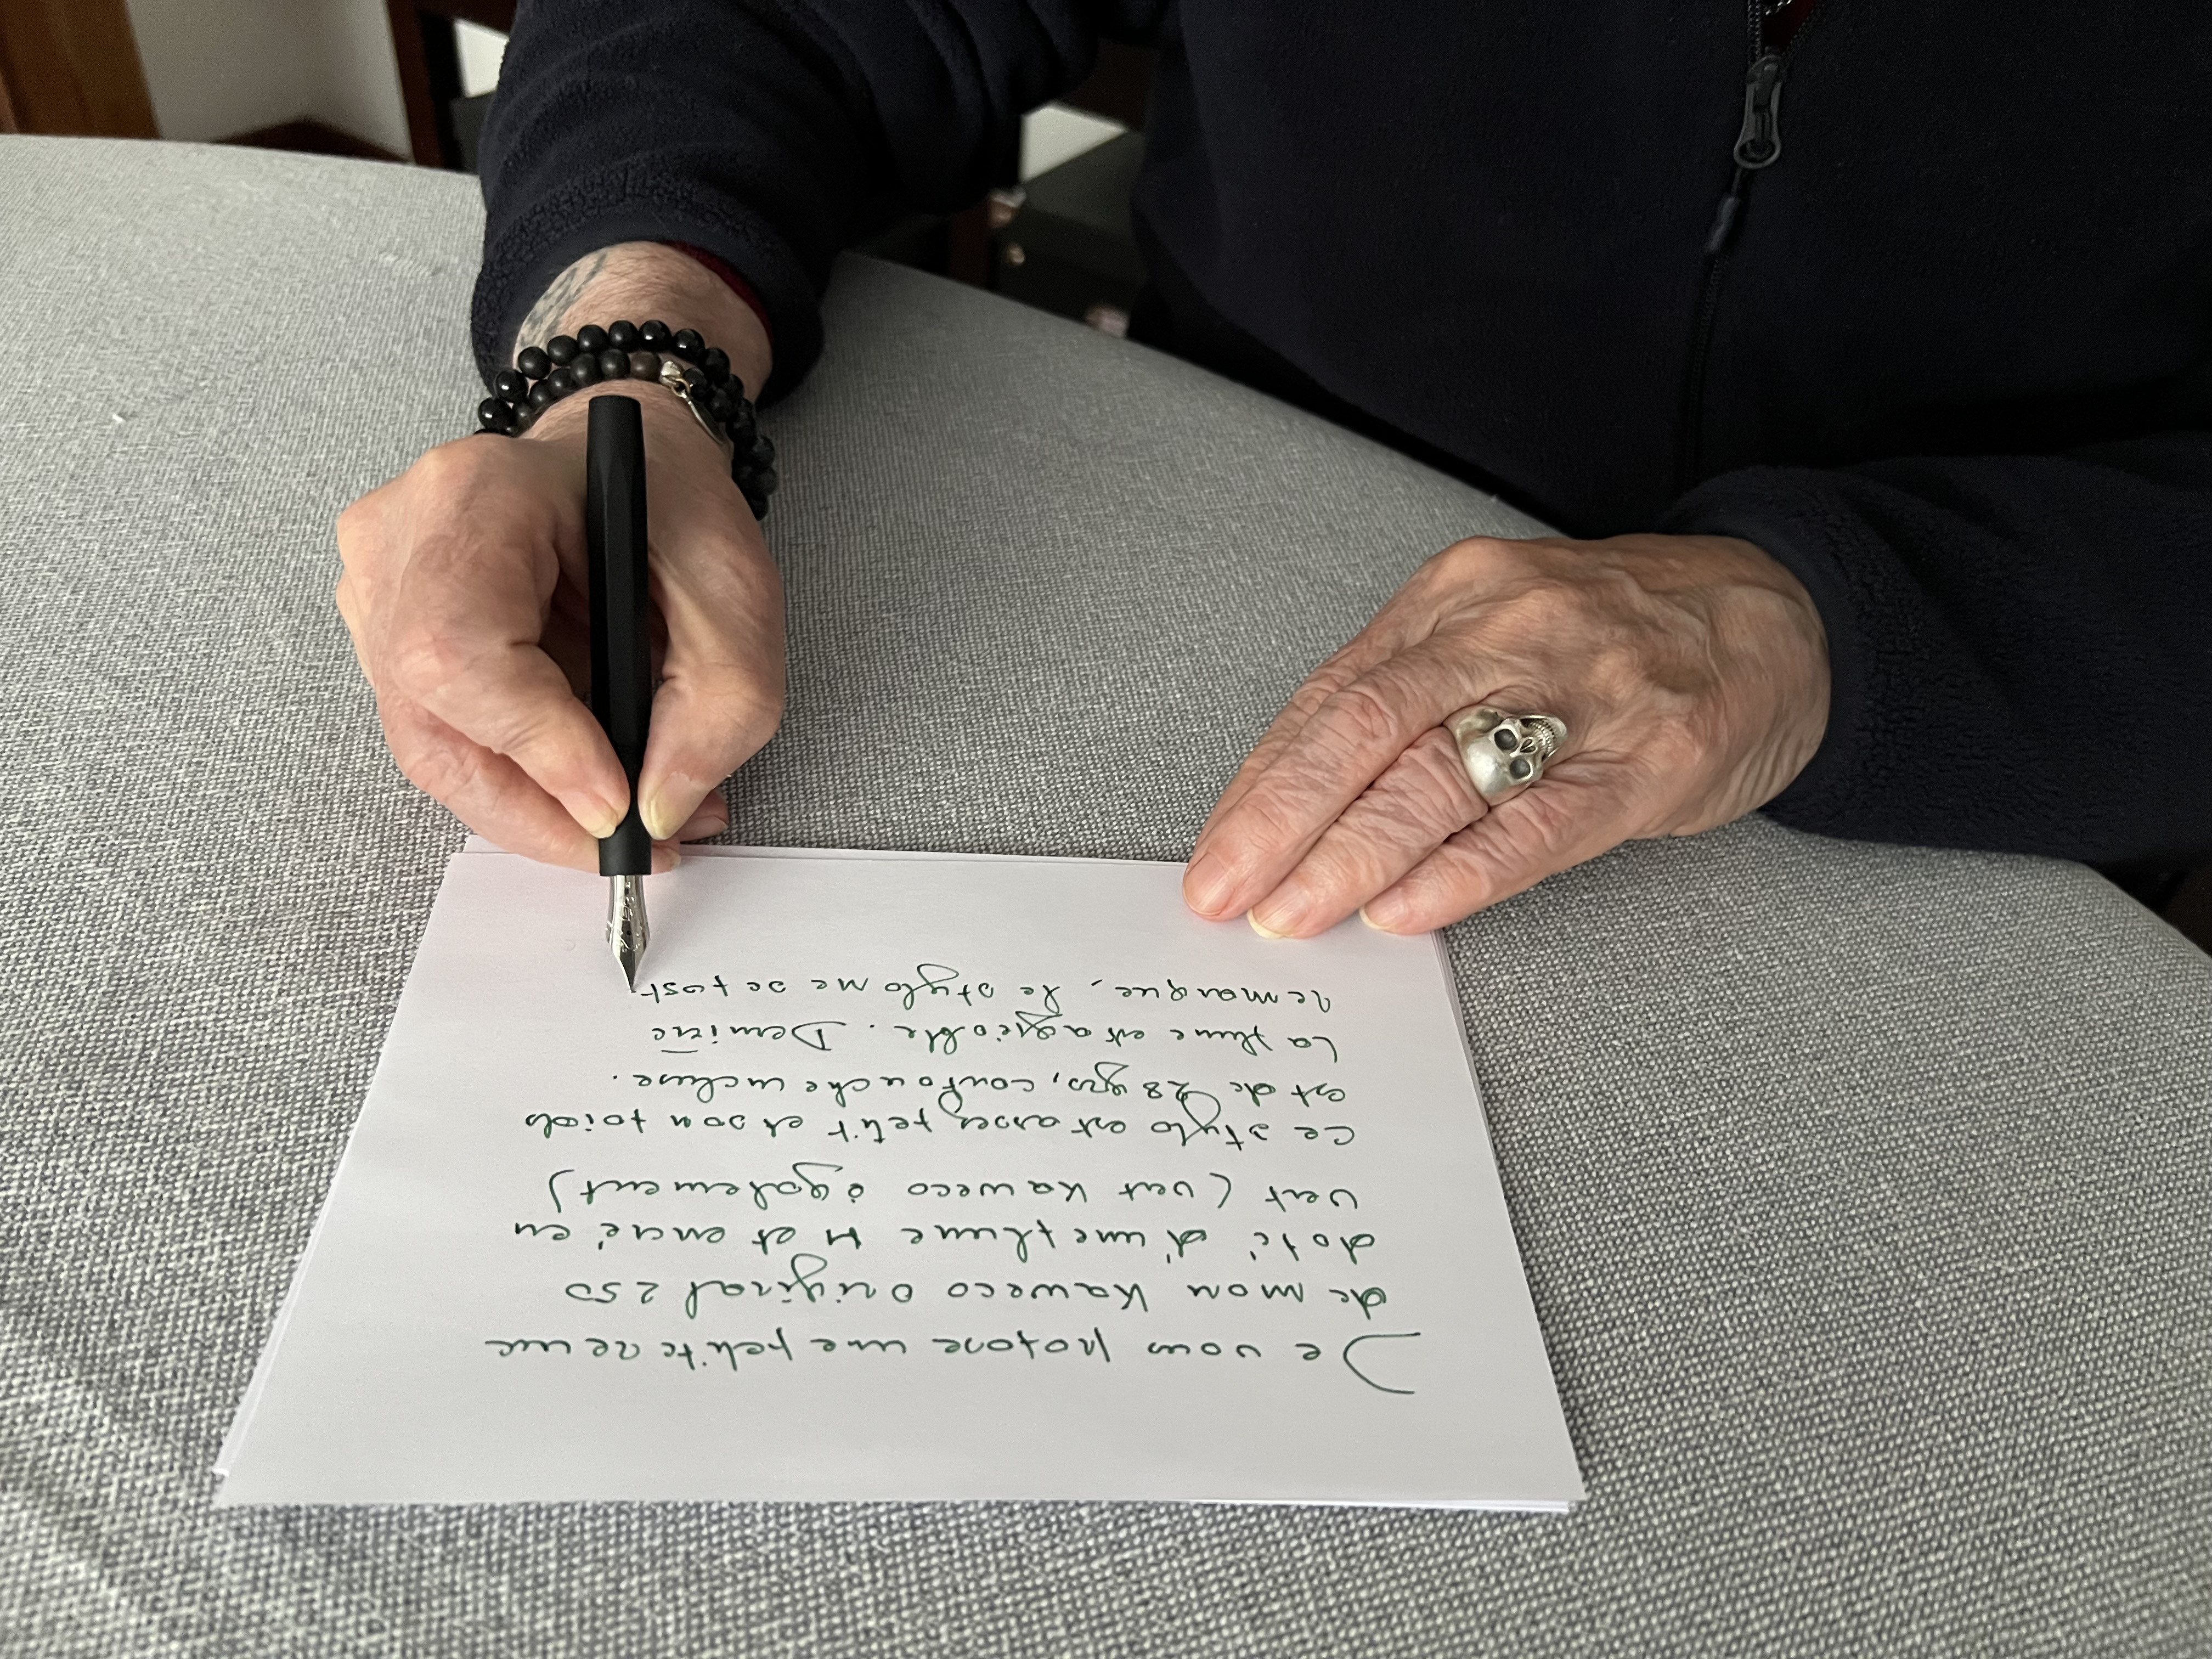 Je vous propose une petite revue
de mon Kaweco Original 250
doté d'une plume M et encré en
vert (vert Kaweco également)
Ce stylo est assez petit et son poids
est de 28 grs, cartouche incluse.
La plume est agréable. Dernière
remarque, le stylo ne se post